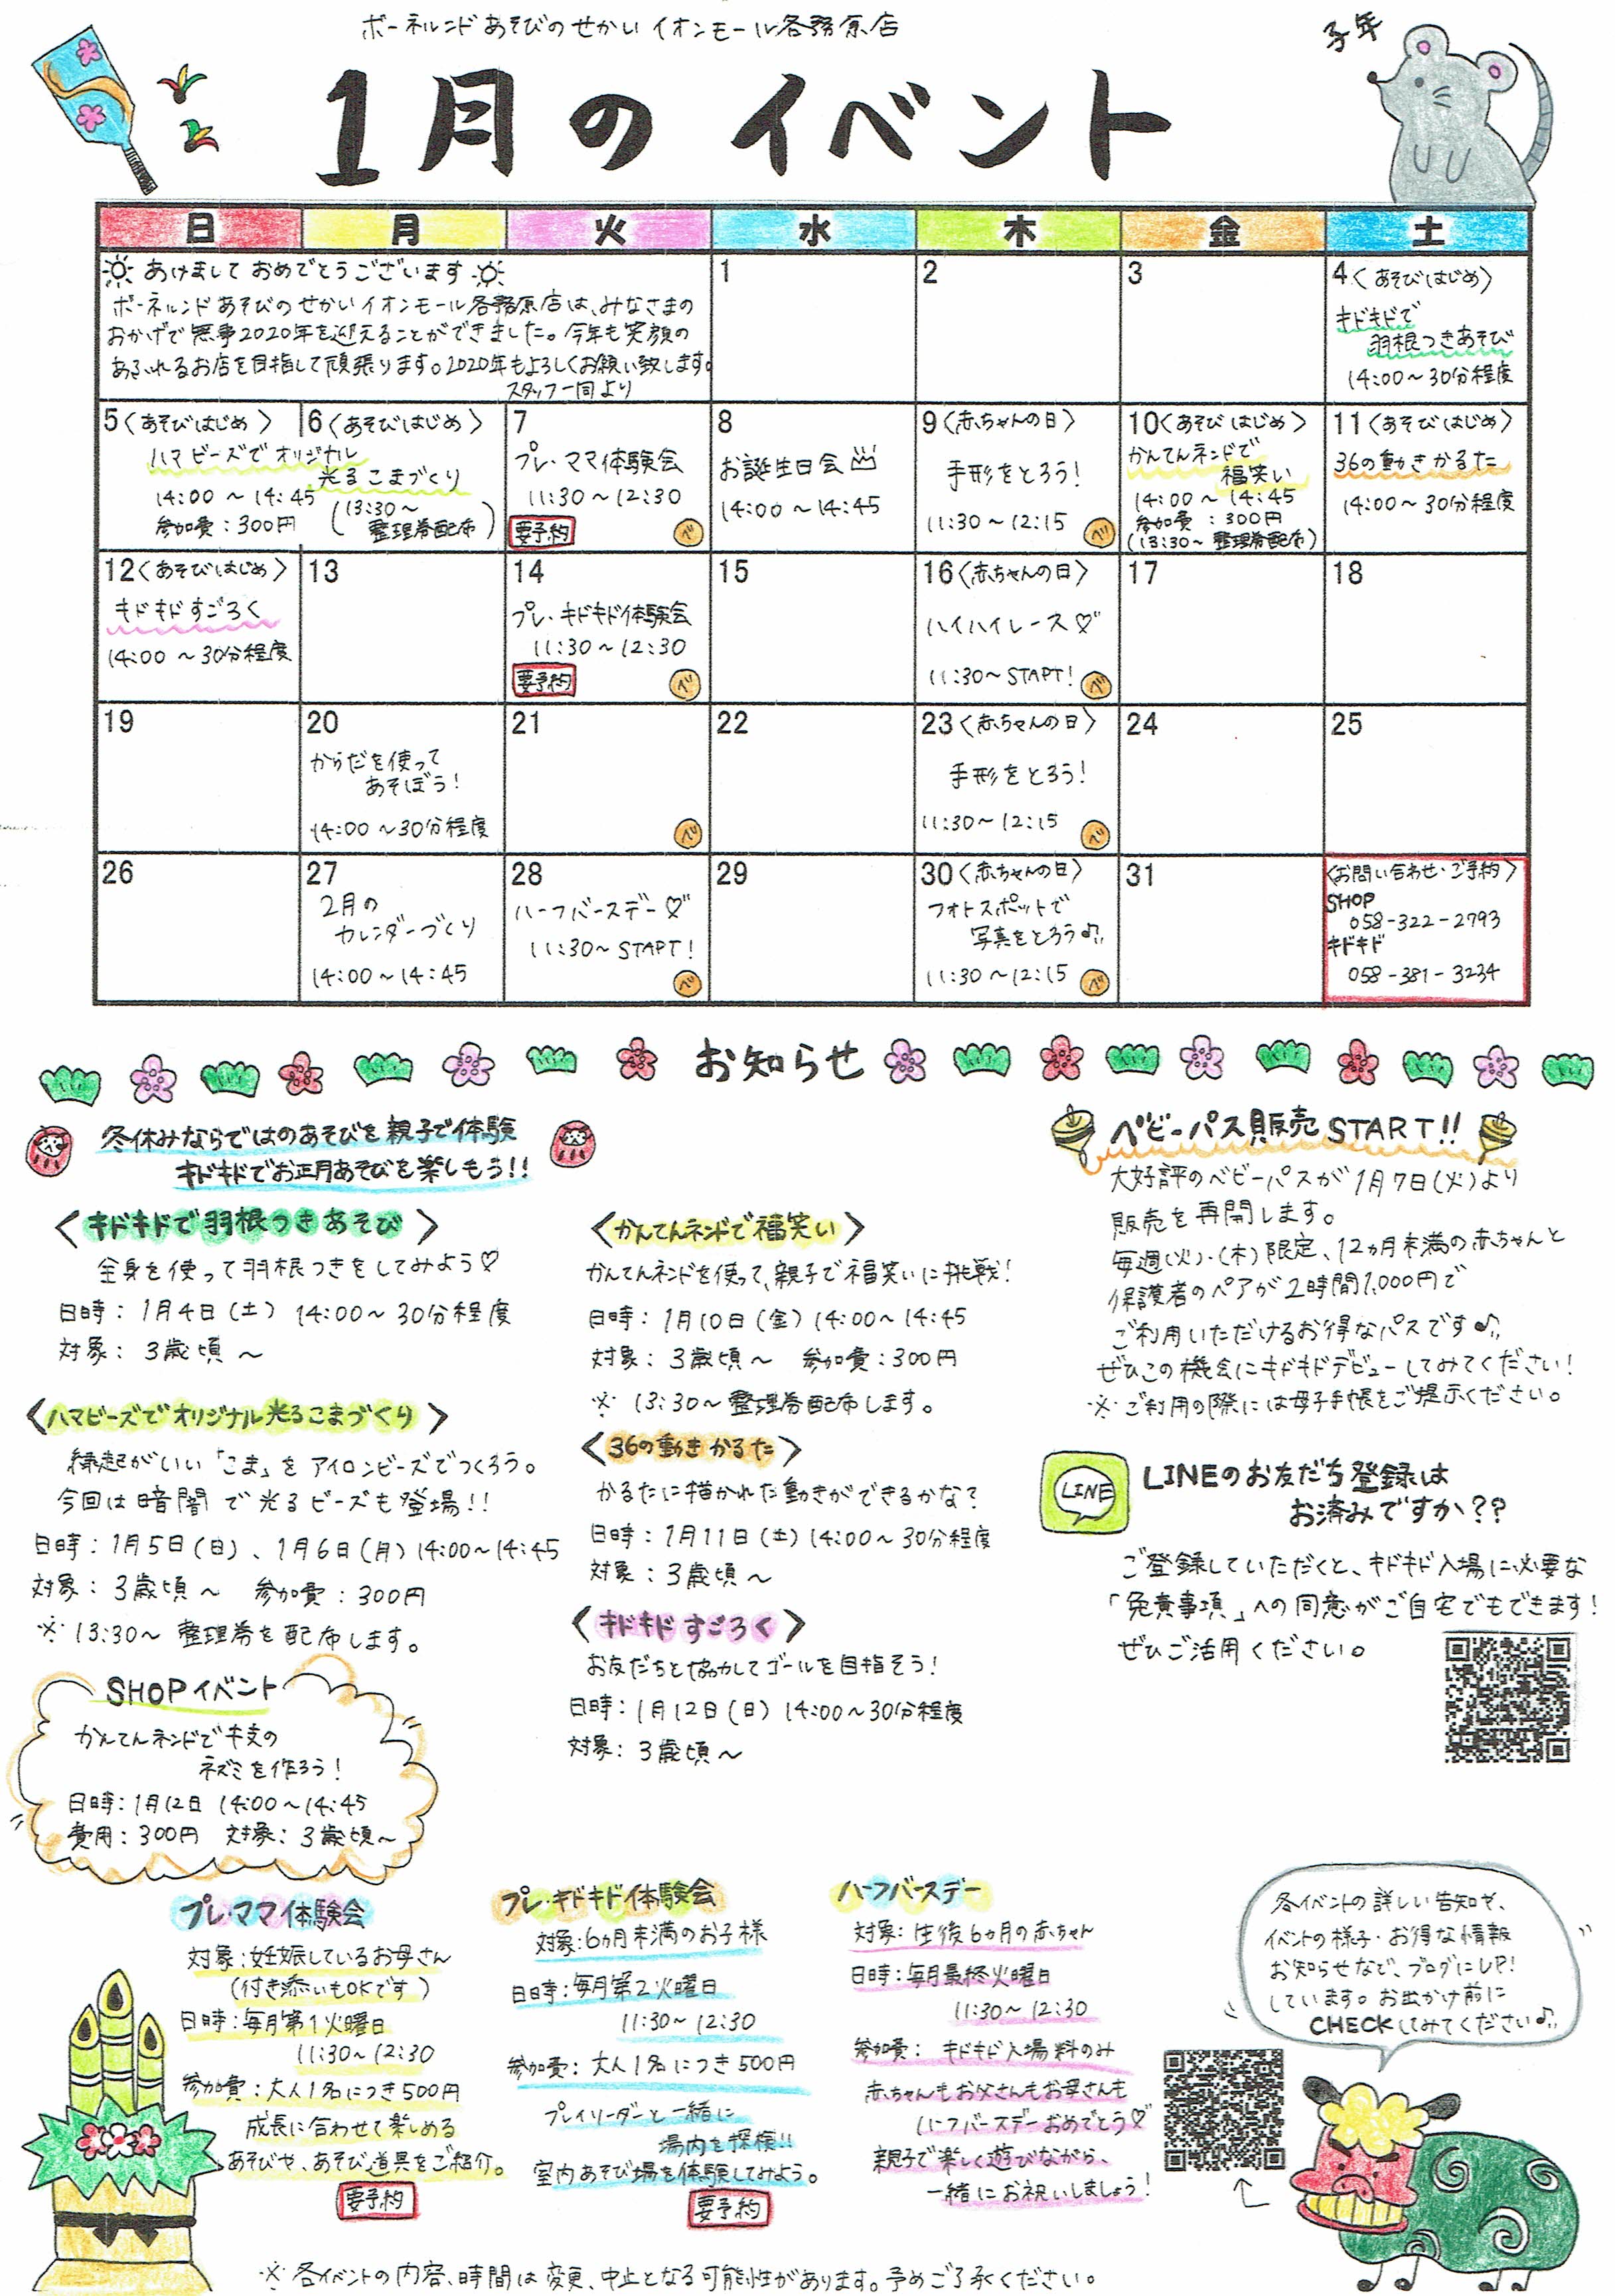 ボーネルンド あそびのせかい イオンモール各務原店
子年
1月のイベント
日 月 火 水 木 金 土
あけまして おめでとうございます
ボーネルンド あそびの せかい イオンモール 各務原店は、みなさまの
おかげで 無事2020年を迎えることができました。今年も笑顔の
あふれるお店を目指して頑張ります。2020年もよろしくお願い致します。
スタッフ一同より
1
2
3
4〈あそびはじめ〉
キドキドで
羽根つきあそび
14:00～30分程度
5〈あそびはじめ〉
6〈あそびはじめ〉
ハマビーズでオリジナル
光るこまづくり
14:00～14:45
参加費：300円
(13:30～
整理券配布)
7
プレ・ママ体験会
11:30～12:30
要予約
ベ
8
お誕生日会
14:00～14:45
9〈赤ちゃんの日〉
手形をとろう！
11:30～12:15
ベ
10〈あそびはじめ〉
かんてんネンドで
福笑い
14:00～14:45
参加費：300円
(13:30～整理券配布)
11〈あそびはじめ〉
36の動きかるた
14:00～30分程度
12〈あそびはじめ〉
キドキドすごろく
14:00～30分程度
13
14
プレ・キドキド体験会
11:30～12:30
要予約
ベ
15
16〈赤ちゃんの日〉
ハイハイレース♡
11:30～START!
ベ
17
18
19
20
からだを使って
あそぼう！
14:00～30分程度
21
ベ
22
23〈赤ちゃんの日〉
手形をとろう！
11:30～12:15
ベ
24
25
26
27
2月の
カレンダーづくり
14:00～14:45
28
ハーフバースデー♡
11:30～START!
ベ
29
30〈赤ちゃんの日〉
フォトスポットで
写真をとろう♪
11:30～12:15
ベ
31
〈お問い合わせ・ご予約〉
SHOP
058-322-2793
キドキド
058-381-3234
お知らせ
冬休みならではのあそびを親子で体験
キドキドでお正月あそびを楽しもう!!
〈キドキドで羽根つきあそび〉
全身を使って羽根つきをしてみよう♡
日時：1月4日(土) 14:00～30分程度
対象：3歳頃～
〈ハマビーズでオリジナル光るこまづくり〉
縁起がいい「こま」をアイロンビーズでつくろう。
今回は暗闇で光るビーズも登場!!
日時：1月5日(日)、1月6日(月) 14:00～14:45
対象：3歳頃～ 参加費：300円
※13:30～整理券を配布します。
SHOPイベント
かんてんネンドで干支の
ネズミを作ろう！
日時：1月12日 14:00～14:45
費用：300円 対象：3歳頃～
〈かんてんネンドで福笑い〉
かんてんネンドを使って、親子で福笑いに挑戦！
日時：1月10日(金) 14:00～14:45
対象：3歳頃～ 参加費：300円
※ 13:30～整理券配布します。
〈36の動きかるた〉
かるたに描かれた動きができるかな？
日時：1月11日(土) 14:00～30分程度
対象：3歳頃～
〈キドキドすごろく〉
お友だちと協力してゴールを目指そう！
日時：1月12日(日) 14:00～30分程度
対象：3歳頃～
ベビーパス販売START!!
大好評のベビーパスが1月7日(火)より
販売を再開します。
毎週(火)・(木)限定、12ヵ月未満の赤ちゃんと
保護者のペアが2時間1,000円で
ご利用いただけるお得なパスです♪
ぜひこの機会にキドキドデビューしてみてください！
※ご利用の際には母子手帳をご提示ください。
LINE
LINEのお友だち登録は
お済みですか??
ご登録していただくと、キドキド入場に必要な
「免責事項」への同意がご自宅でもできます！
ぜひご活用ください。
プレ・ママ体験会
対象：妊娠しているお母さん
(付き添いもOKです)
日時：毎月第1火曜日
11:30～12:30
参加費：大人1名につき500円
成長に合わせて楽しめる
あそびや、あそび道具をご紹介。
要予約
プレ・キドキド体験会
対象：6ヵ月未満のお子様
日時：毎月第2火曜日
11:30～12:30
参加費：大人1名につき500円
プレイリーダーと一緒に
場内を探検!!
室内あそび場を体験してみよう。
要予約
ハーフバースデー
対象：生後6ヵ月の赤ちゃん
日時：毎月最終火曜日
11:30～12:30
参加費：キドキド入場料のみ
赤ちゃんもお父さんもお母さんも
ハーフバースデーおめでとう♡
親子で楽しく遊びながら、
一緒にお祝いしましょう！
各イベントの詳しい告知や、
イベントの様子・お得な情報
お知らせなど、ブログにUP!
しています。お出かけ前に
CHECKしてみてください♪
※ 各イベントの内容、時間は変更、中止となる可能性があります。予めご了承ください。